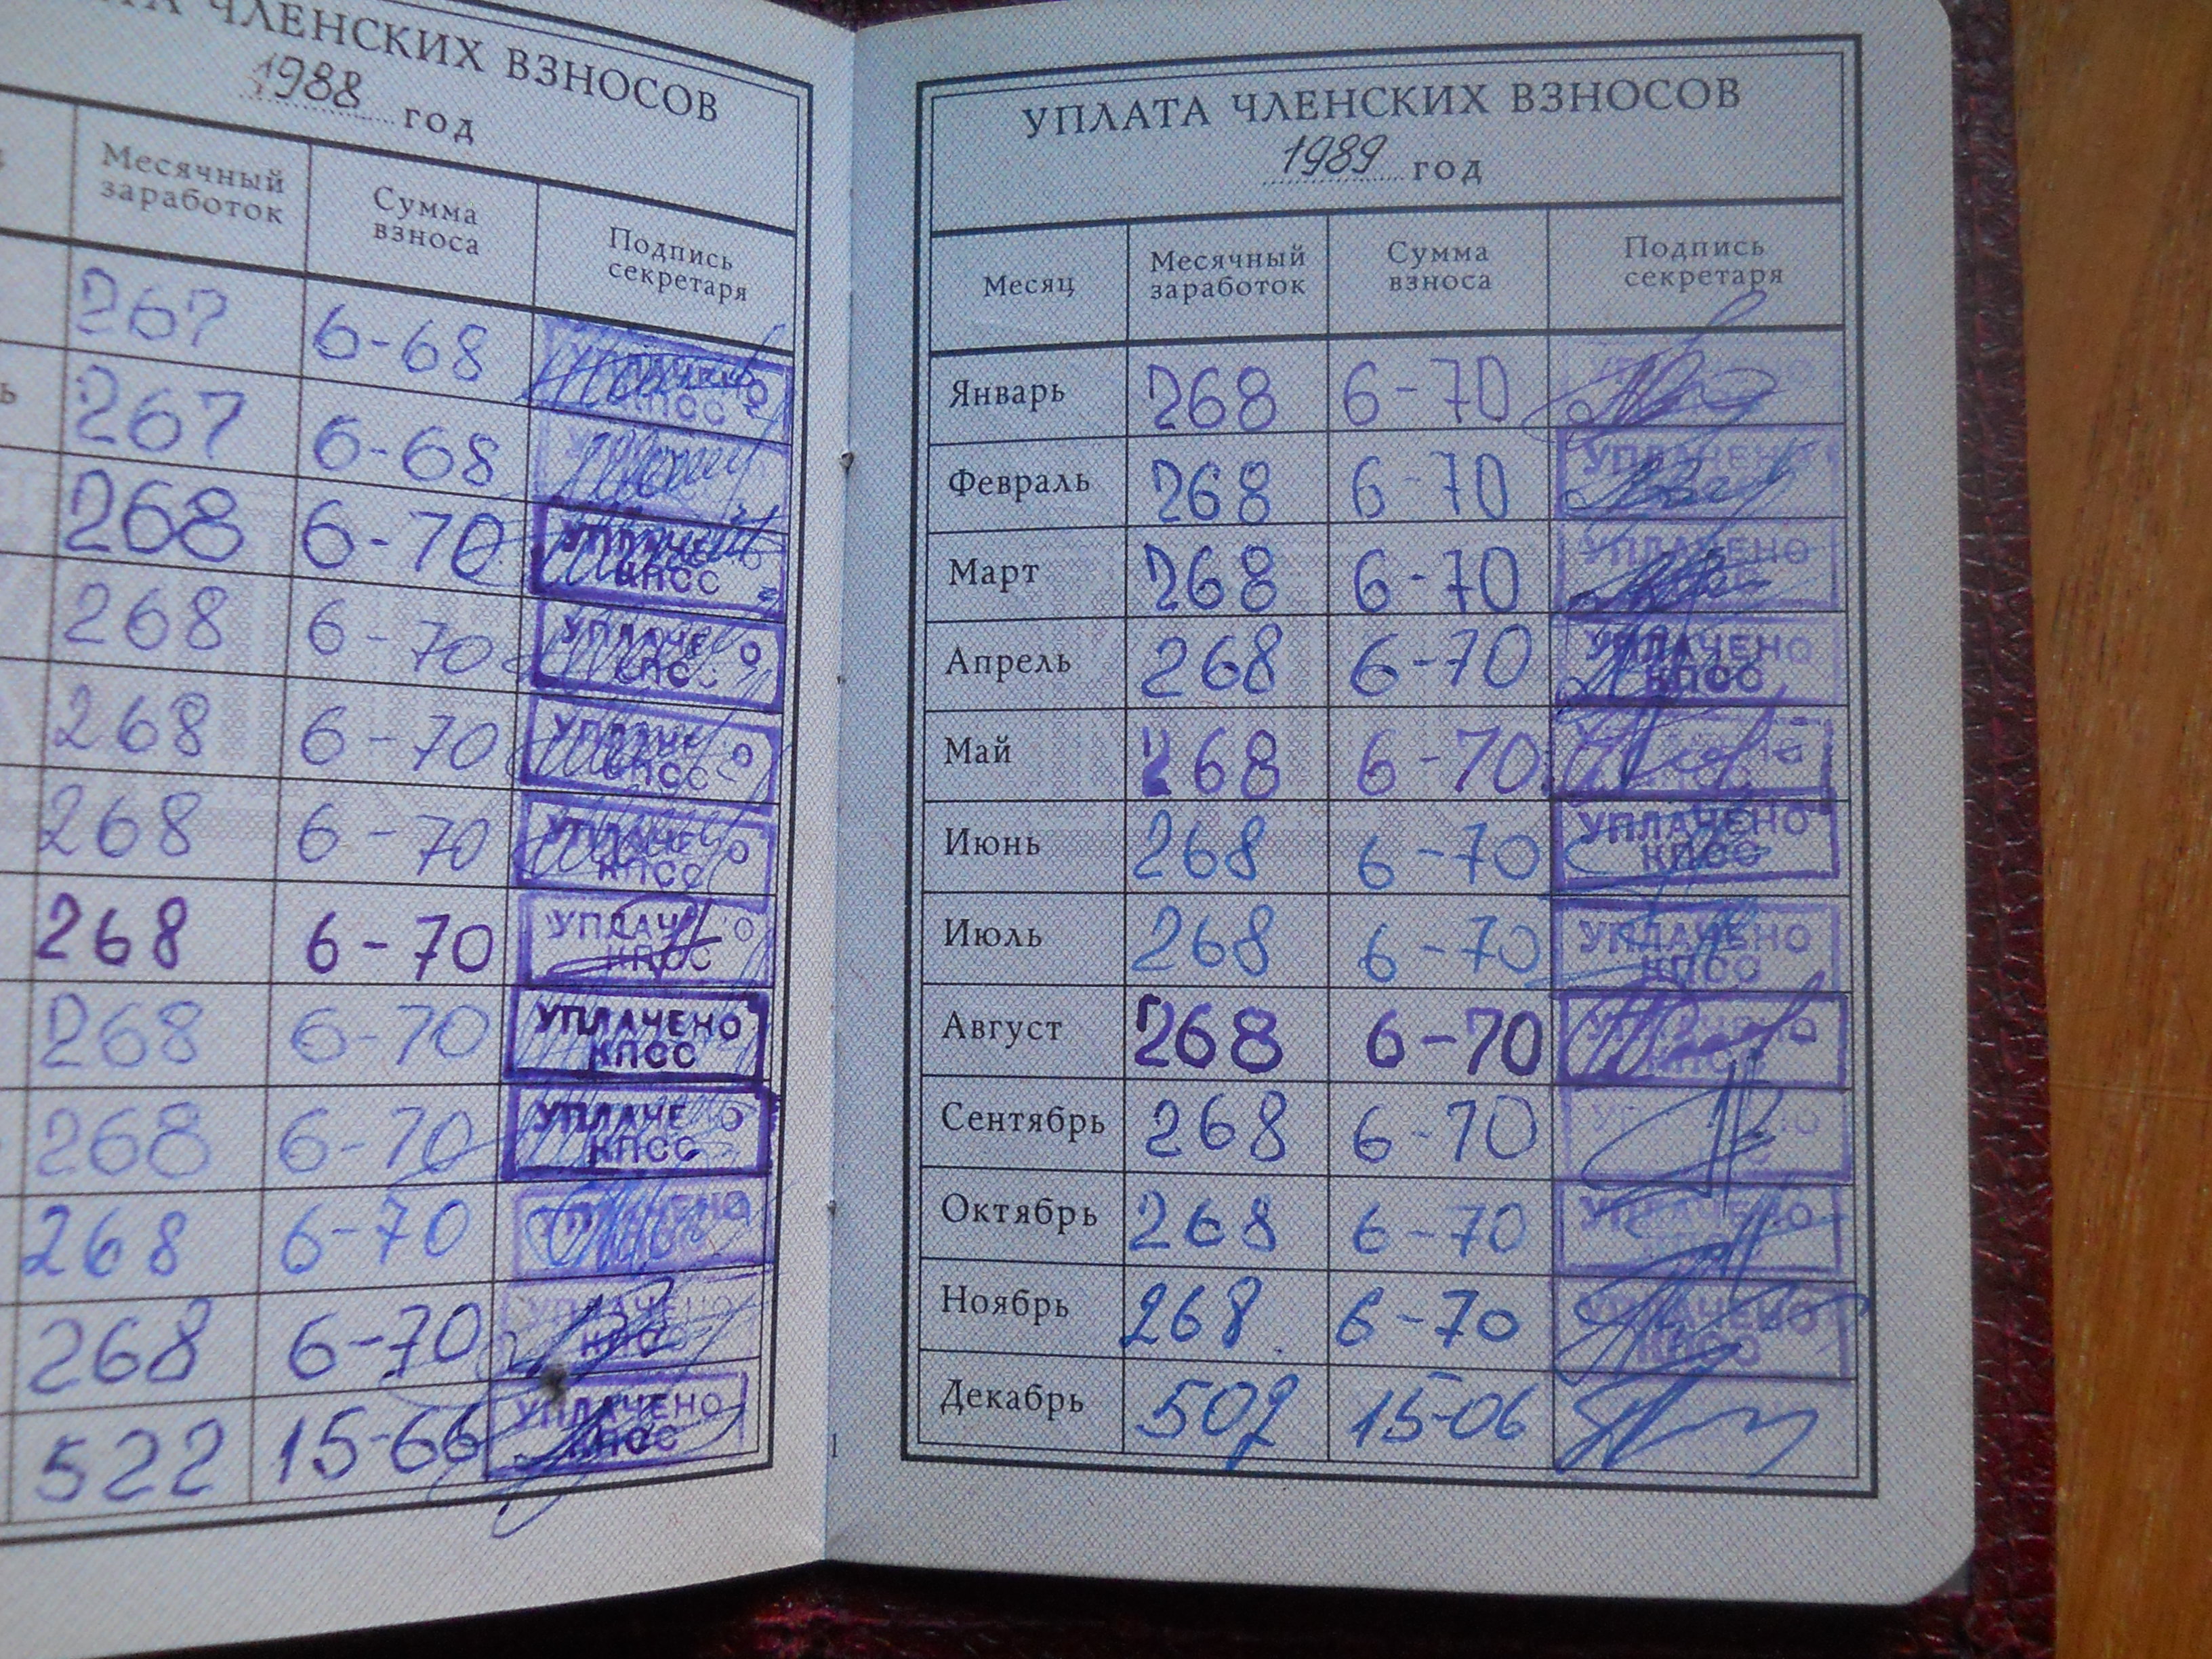 ЧЛЕНСКИХ ВЗНОСОВ
1988 год
Месячный заработок Сумма взноса Подпись секретаря
267 6-68 КПСС
267 6-68
268 6-70 УПЛАЧЕНО КПСС
268 6-70 УПЛАЧЕ О КПСС
268 6-70 УПЛАЧЕ О КПСС
268 6-70 УПЛАЧЕНО КПСС
268 6-70 УПЛАЧЕ О КПСС
268 6-70 УПЛАЧЕНО КПСС
268 6-70 УПЛАЧЕ О КПСС
268 6-70 УПЛАЧЕНО
268 6-70 УПЛАЧЕНО КПСС
522 15-66 УПЛАЧЕНО КПСС
УПЛАТА ЧЛЕНСКИХ ВЗНОСОВ
1989 год
Месяц Месячный заработок Сумма взноса Подпись секретаря
Январь 268 6-70
Февраль 268 6-70 УПЛАЧЕНО
Март 268 6-70 УПЛАЧЕНО
Апрель 268 6-70 УПЛАЧЕНО КПСС
Май 268 6-70
Июнь 268 6-70 УПЛАЧЕНО КПСС
Июль 268 6-70 УПЛАЧЕНО КПСС
Август 268 6-70 УПЛАЧЕНО КПСС
Сентябрь 268 6-70
Октябрь 268 6-70 УПЛАЧЕНО
Ноябрь 268. 6-70 УПЛАЧЕНО КПСС
Декабрь 502 15-06